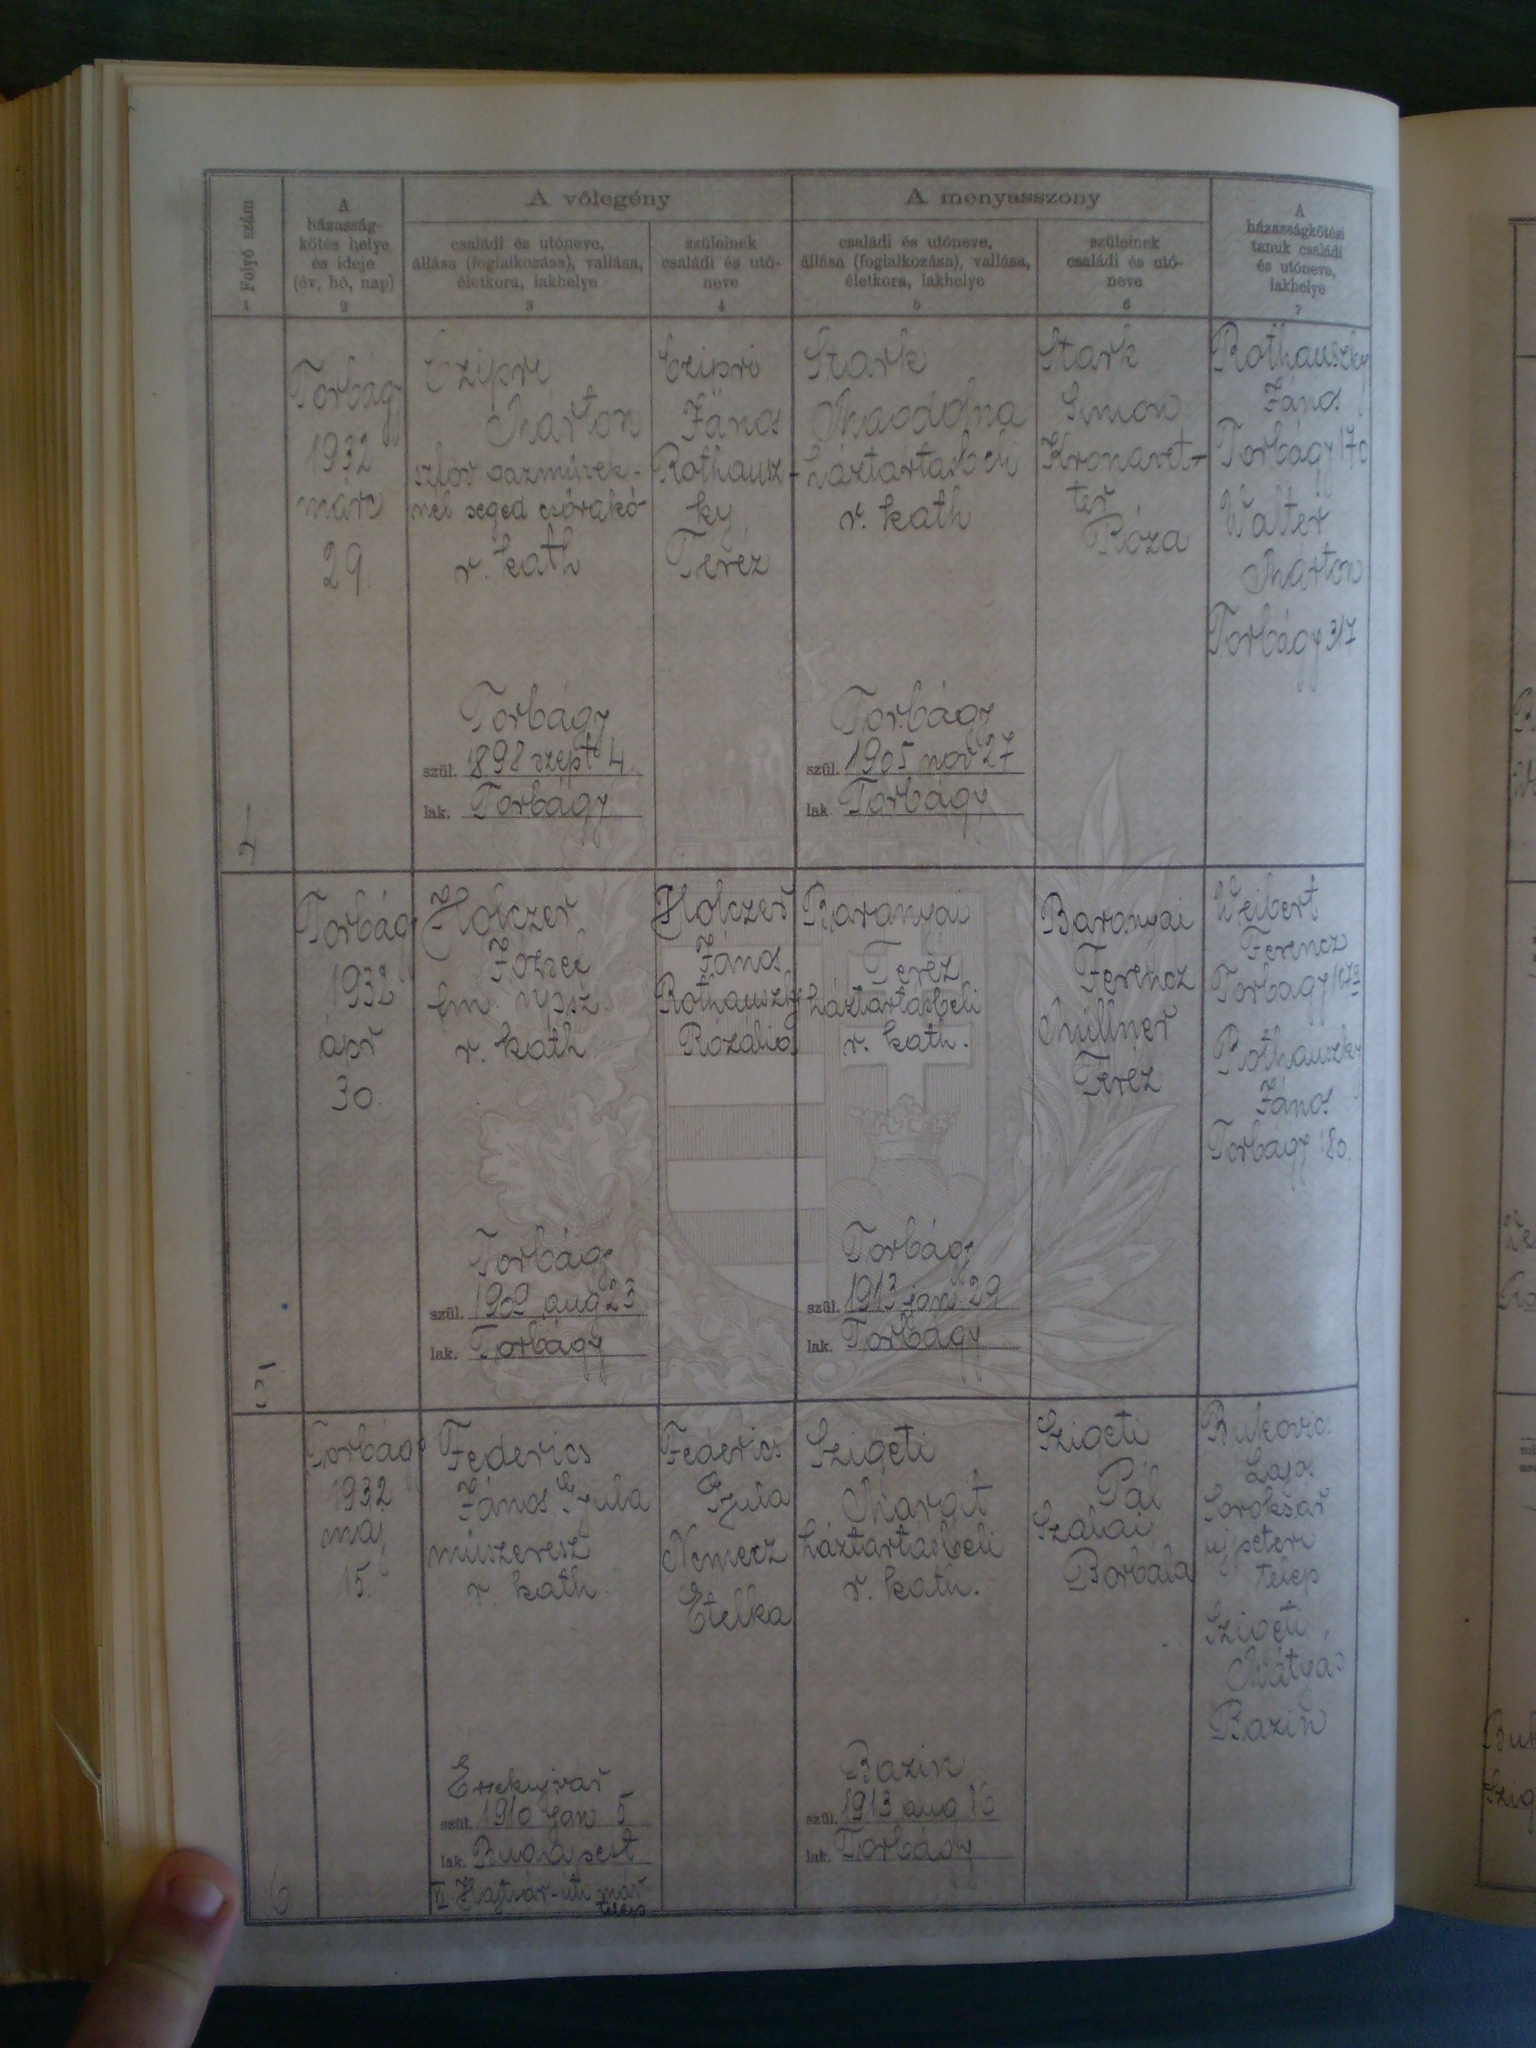 Folyó szám
1
A
házasság-
kötés helye
és ideje
(év, hó, nap)
2
A vőlegény
családi és utóneve,
állása (foglalkozása), vallása,
életkora, lakhelye
3
szüleinek
családi és utó-
neve
4
A menyasszony
családi és utóneve,
állása (foglalkozása), vallása,
életkora, lakhelye
5
szüleinek
családi és utó-
neve
6
A
házasságkötési
tanuk családi
és utóneve,
lakhelye
7
4
Torbágy
1932
márc
29.
Czipri
Márton
szfőv gázművek-
nél segéd csőrakó
r. kath
Torbágy
szül. 1898 szept 4.
lak. Torbágy
Czipri
János
Rothausz-
ky
Teréz
Stark
Magdolna
háztartásbeli
r. kath
Torbágy
szül. 1905 nov 27
lak. Torbágy
Stark
Simon
Kronavet-
ter
Róza
Rothauszky
János
Torbágy 170
Walter
Márton
Torbágy 317
5
Torbágy
1932
ápr
30.
Holczer
József
fm. npsz
r. kath
Torbágy
szül. aug 23
lak. Torbágy
Holczer
János
Rothauszky
Rozália
Baranyai
Teréz
háztartásbeli
r. kath.
Torbágy
szül. 1913 jan. 29
lak. Torbágy
Baranyai
Ferencz
Müllner
Teréz
Weibert
Ferencz
Torbágy
Rothauszky
János
Torbágy 180.
6
Torbágy
1932
máj
15.
Federics
János Gyula
műszerész
r. kath.
Érsekujvár
szül. 1910 jan 5
lak. Budapest
VI. Hajtsár-uti
telep
Federics
Gyula
Nemecz
Etelka
Szigeti
Margit
háztartásbeli
r. kath.
Bazin
szül. 1913 aug 16
lak. Torbágy
Szigeti
Pál
Szalai
Borbála
Bukovics
Lajos
Soroksár
ujpéteri
telep
Szigeti
Mátyás
Bazin